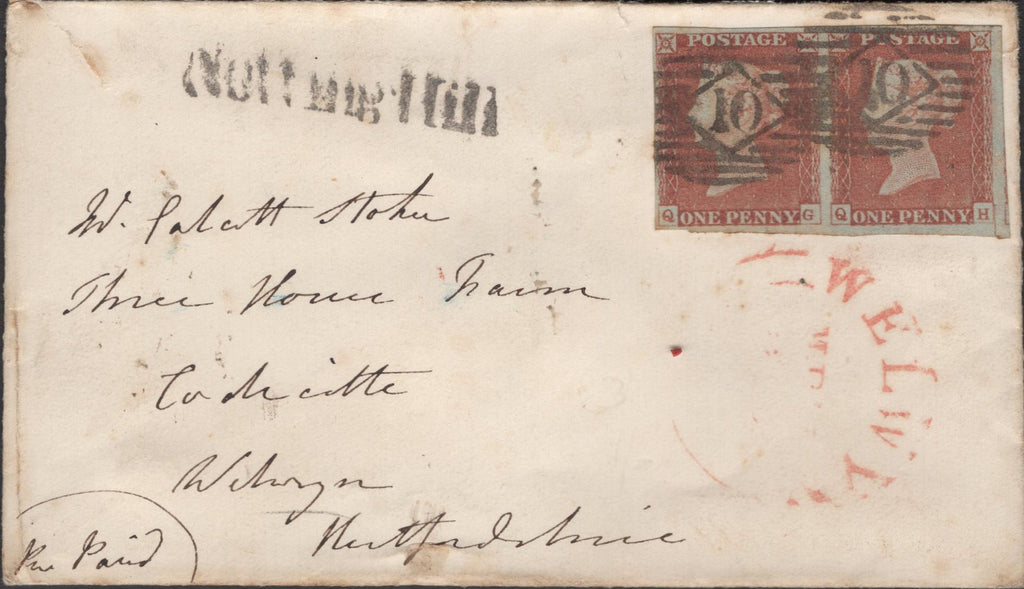 POSTAGE POSTAGE
10 10
Q ONE PENNY G Q ONE PENNY H
Notting Hill
W. Calcott Stoker
Three House Farm
Codicotte
Welwyn
Hertfordshire
Pre Paid
WELWY